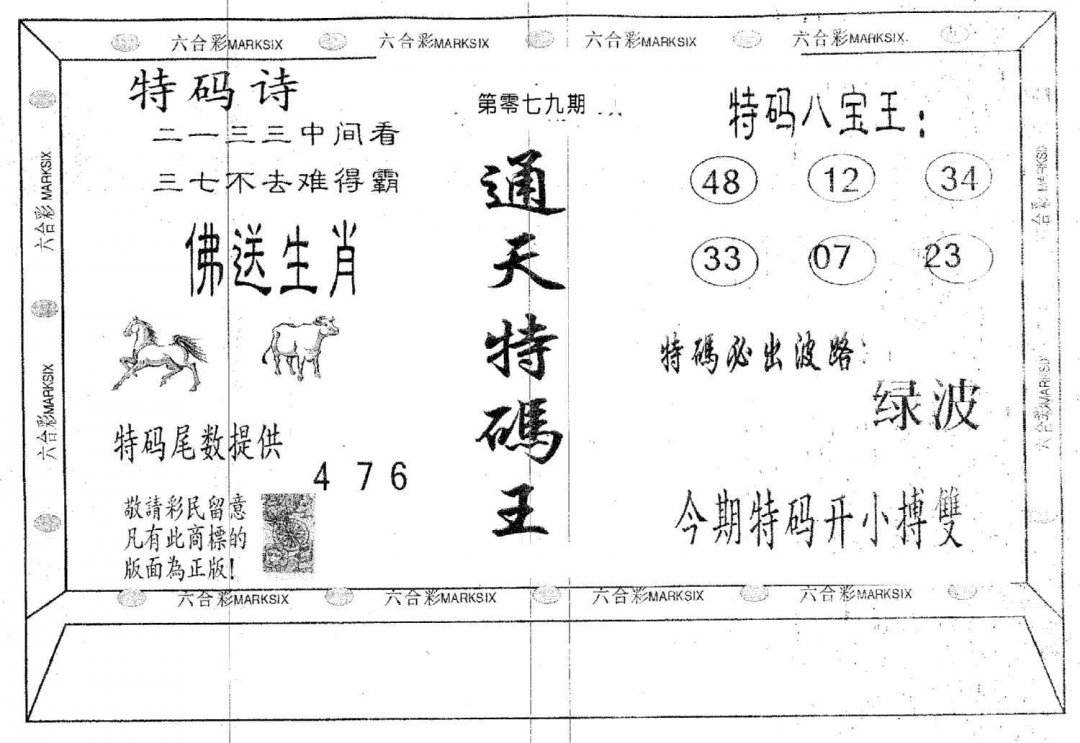 六合彩MARKSIX 六合彩MARKSIX 六合彩MARKSIX 六合彩MARKSIX
六合彩 MARKSIX
六合彩MARKSIX
特码诗
二一三三中间看
三七不去难得霸
佛送生肖
特码尾数提供
4 7 6
敬請彩民留意
凡有此商標的
版面為正版!
第零七九期
通天特碼王
特码八宝王:
48 12 34
33 07 23
特碼必出波路:
绿波
今期特码开小搏雙
六合彩 MARKSIX
六合彩MARKSIX
六合彩MARKSIX 六合彩MARKSIX 六合彩MARKSIX 六合彩MARKSIX